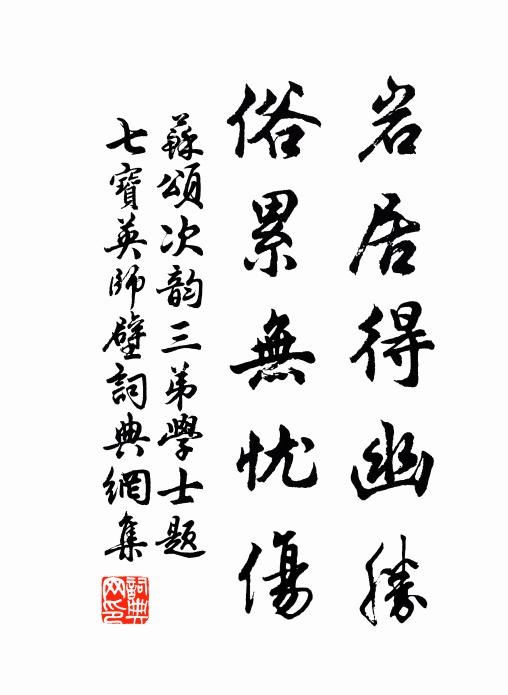 岩居得幽勝
俗累無忧傷
蘇頌次韵三弟學士題
七寶英師壁詞典網集
詞典网印